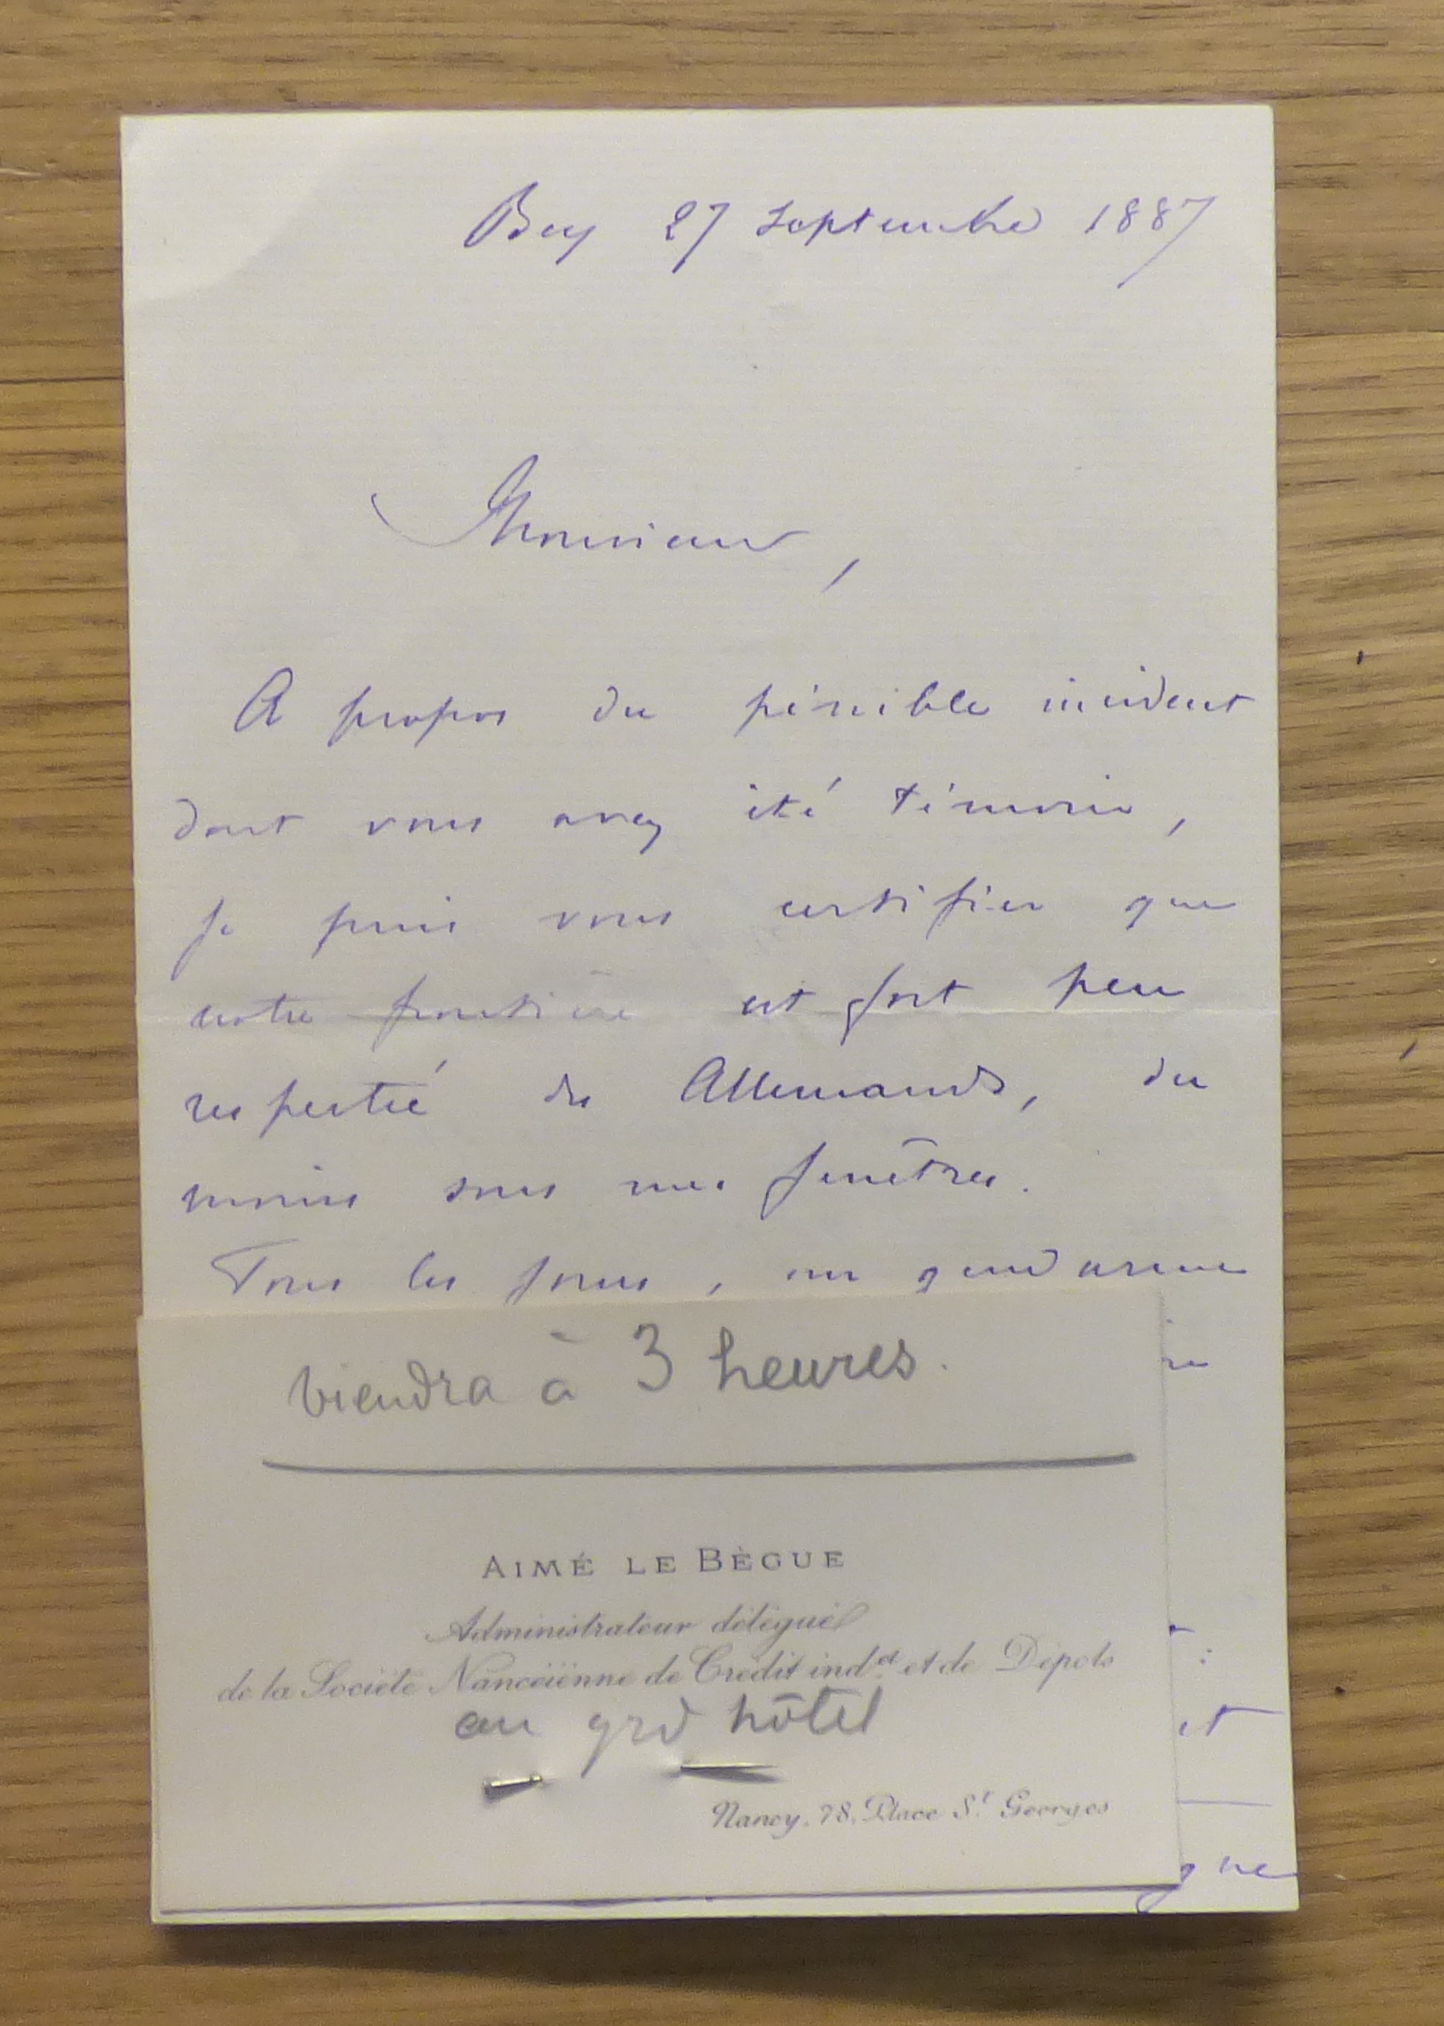 Bey 27 Septembre 1887
Monsieur,
A propos du pénible incident
dont vous avez été témoin,
je puis vous certifier que
notre frontière est fort peu
respectée des Allemands, du
moins sous mes fenêtres.
Tous les jours, un gendarme
viendra à 3 heures.
AIMÉ LE BÈGUE
Administrateur délégué
de la Société Nancéienne de Crédit ind.el et de Dépots
au grd hôtel
Nancy, 78, Place St Georges
et
que